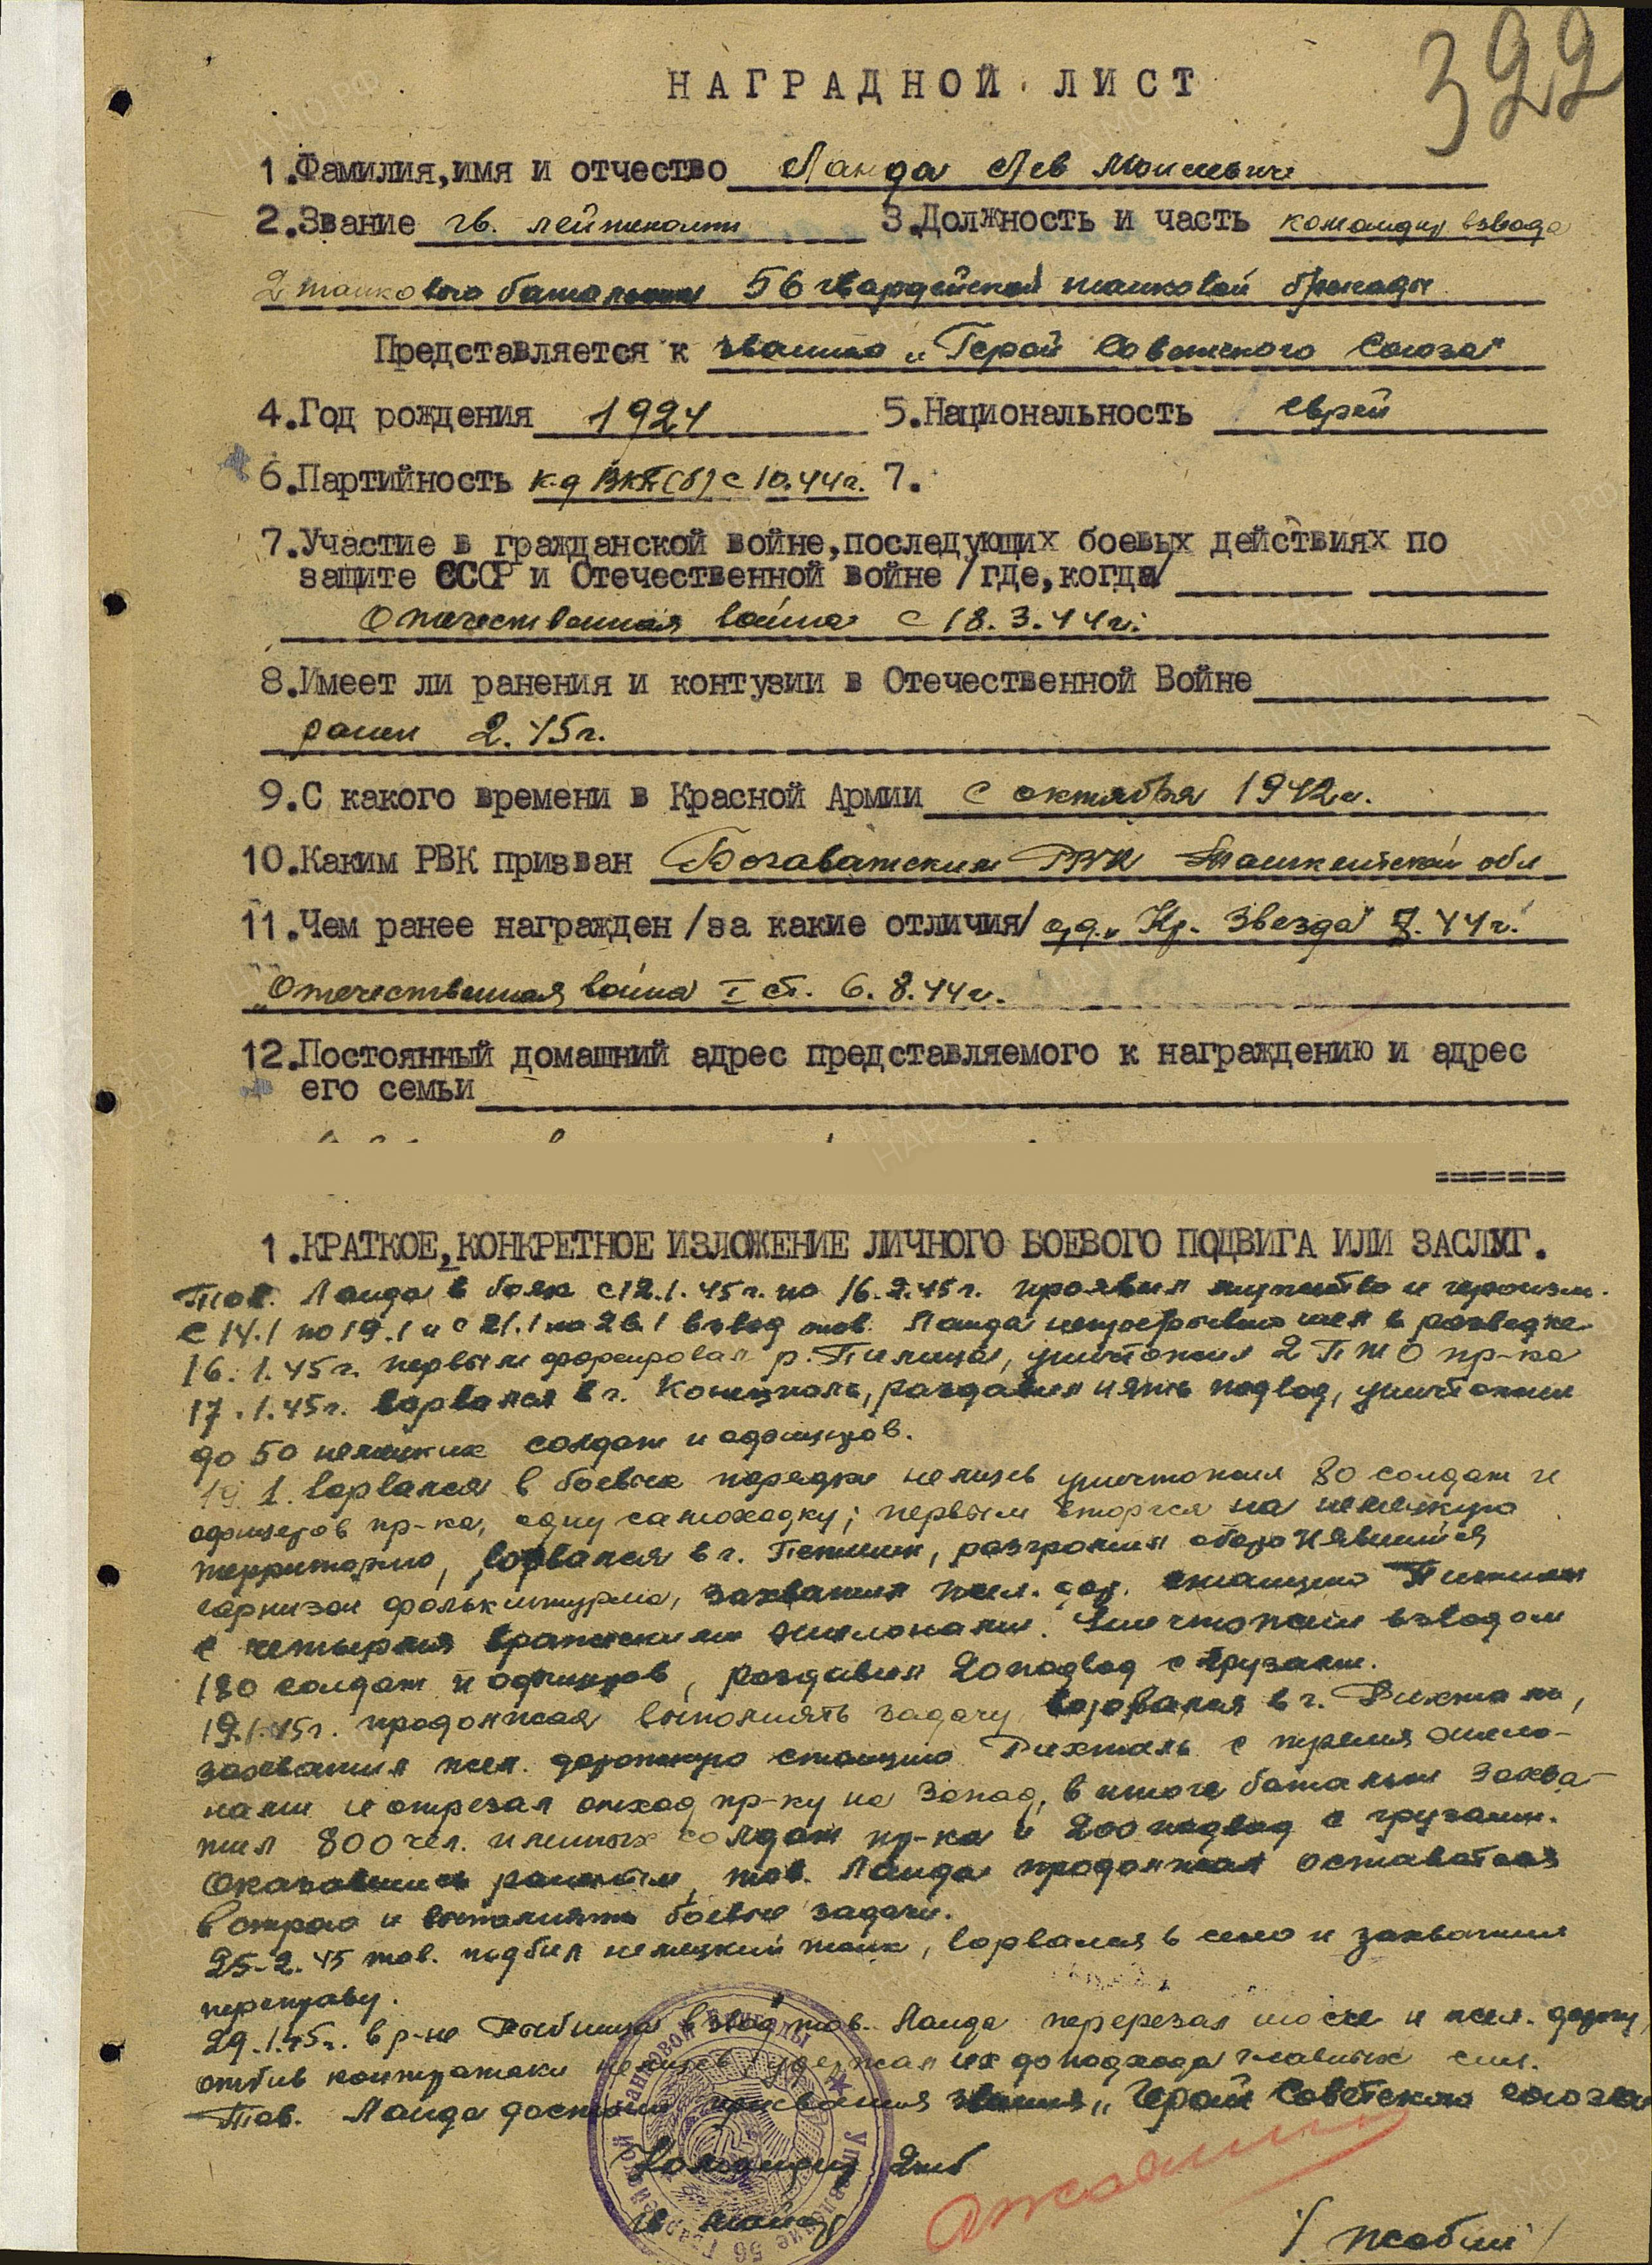 322
НАГРАДНОЙ ЛИСТ
1.Фамилия,имя и отчество Ланда Лев Моисеевич
2.Звание гв. лейтенант 3.Должность и часть командир взвода
2 танкового батальона 56 гвардейской танковой бригады
Представляется к званию „Герой Советского Союза"
4.Год рождения 1924 5.Национальность еврей
6.Партийность к-д ВКП(б) с 10.44г. 7.
7.Участие в гражданской войне,последующих боевых действиях по
защите СССР и Отечественной войне /где,когда/
Отечественная война с 18.3.44г.
8.Имеет ли ранения и контузии в Отечественной Войне
ранен 2.45г.
9.С какого времени в Красной Армии с октября 1942г.
10.Каким РВК призван РВК Ташкентской обл
11.Чем ранее награжден /за какие отличия/ орд. „Кр. Звезда" 7.44г.
„Отечественная война I ст. 6.8.44г.
12.Постоянный домашний адрес представляемого к награждению и адрес
его семьи
=======
1.КРАТКОЕ,КОНКРЕТНОЕ ИЗЛОЖЕНИЕ ЛИЧНОГО БОЕВОГО ПОДВИГА ИЛИ ЗАСЛУГ.
Тов. Ланда в боях с 12.1.45г. по 16.2.45г. проявил мужество и героизм.
С 14.1 по 19.1 и с 21.1 по 26.1 взвод тов. Ланда непрерывно шел в разведке
16.1.45г. первым форсировал р. Пилица, уничтожил 2 ПТО пр-ка
17.1.45г. ворвался в г. Конецполь, раздавил пять подвод, уничтожил
до 50 немецких солдат и офицеров.
19.1. ворвался в боевые порядки немцев уничтожил 80 солдат и
офицеров пр-ка, одну самоходку; первым вторгся на немецкую
территорию, ворвался в г. Питшен, разгромил оборонявшийся
гарнизон фольксштурма, захватил жел. дор. станцию Питшен
с четырмя вражескими эшелонами. Уничтожил взводом
180 солдат и офицеров, раздавил 20 подвод с грузами.
19.1.45г. продолжая выполнять задачу ворвался в г. Рихталь,
захватил жел. дорожную станцию Рихталь с тремя эшело-
нами и отрезал отход пр-ку на запад, в итоге батальон захва-
тил 800 чел. пленных солдат пр-ка и 200 подвод с грузами.
Оказавшись раненым, тов. Ланда продолжал оставаться
в строю и выполнять боевые задачи.
25.2.45 тов. подбил немецкий танк, ворвался в село и захватил
переправу.
29.1.45г. в р-не Рыбница взвод тов. Ланда перерезал шоссе и жел. дорогу,
отбив контратаки немцев удержал их до подхода главных сил.
Тов. Ланда достоин присвоения звания „Герой Советского Союза
Командир 2тб
гв. майор
/ Жабин /